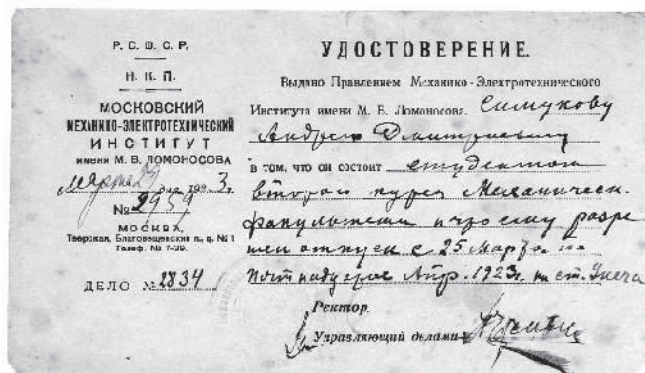 Р. С. Ф. С. Р.
Н. К. П.
МОСКОВСКИЙ
МЕХАНИКО-ЭЛЕКТРОТЕХНИЧЕСКИЙ
ИНСТИТУТ
ИМЕНИ М. В. ЛОМОНОСОВА
марта 29 дня 192 3 г.
№ 2959
МОСКВА,
Тверская, Благовещенский п., д. № 1
Телеф. № 7-39.
ДЕЛО № 2834
УДОСТОВЕРЕНИЕ.
Выдано Правлением Механико-Электротехнического
Института имени М. В. Ломоносова. Симукову
Андрею Дмитриевичу
в том, что он состоит студентом
второго курса Механическ.
факультета и что ему разре
шен отпуск с 25 Марта по
Апр. 1923 г. на ст.
Ректор.
Управляющий делами